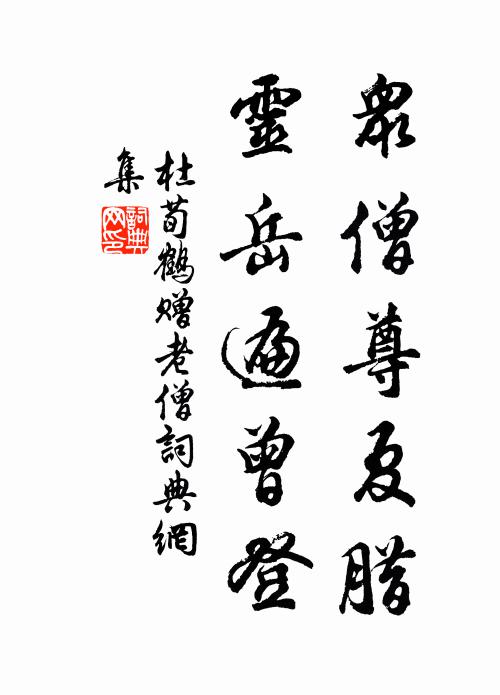 眾僧尊夏臘
靈岳遍曾登
杜荀鶴贈老僧詞典網
集
詞典网印